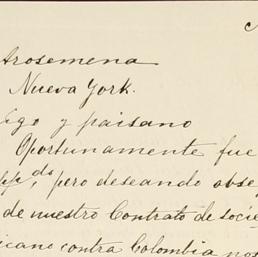 Arosemena
Nueva York.
igo y paisano
Oportunamente fue
pdo, pero deseando obse
de nuestro Contrato de socie
icano contra Colombia nos